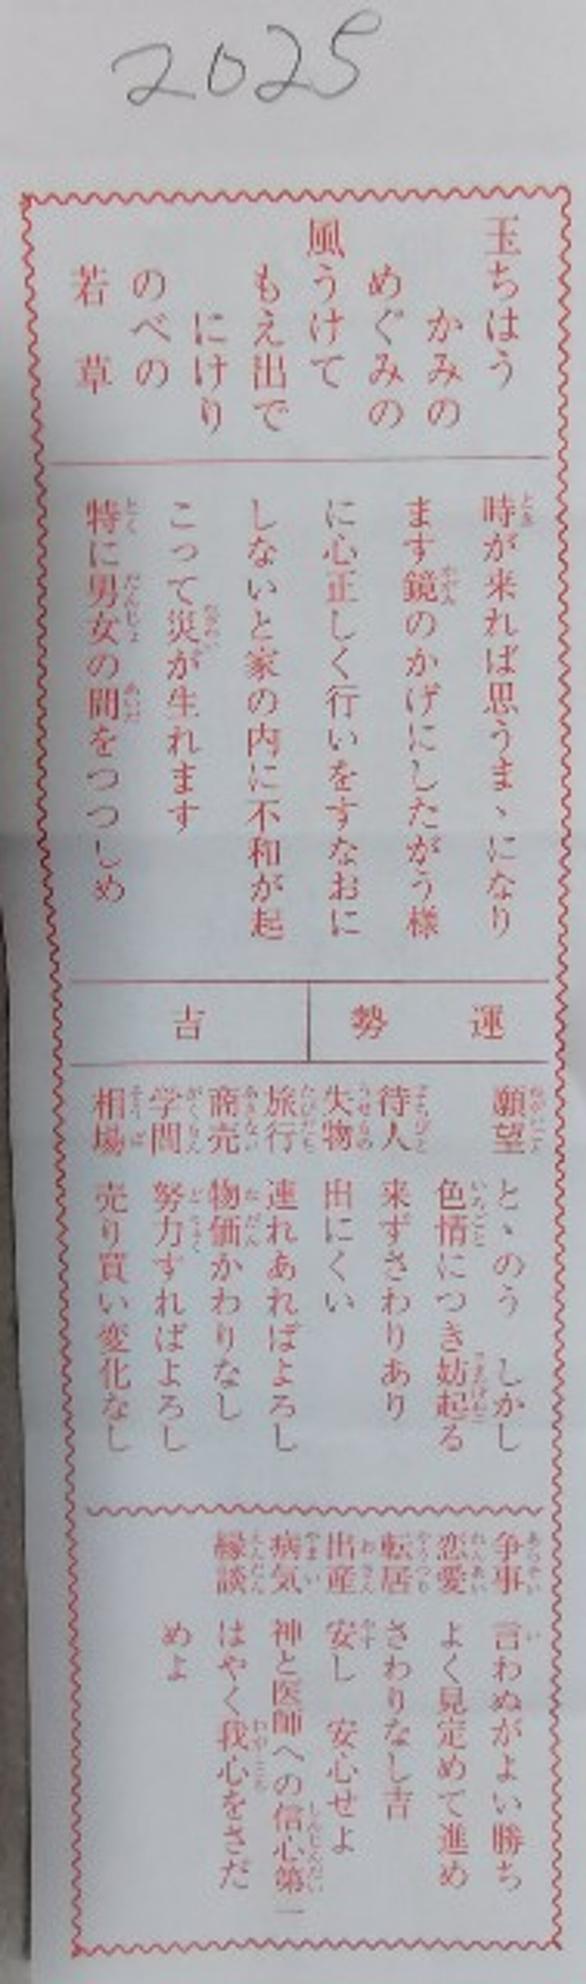 2025
玉ちはう
かみの
めぐみの
風うけて
もえ出で
にけり
のべの
若草
時が来れば思うまゝになり
ます鏡のかげにしたがう様
に心正しく行いをすなおに
しないと家の内に不和が起
こって災が生れます
特に男女の間をつつしめ
運勢
吉
願望 とゝのう しかし
色情につき妨起る
待人 来ずさわりあり
失物 出にくい
旅行 連れあればよろし
商売 物価かわりなし
学問 努力すればよろし
相場 売り買い変化なし
争事 言わぬがよい勝ち
恋愛 よく見定めて進め
転居 さわりなし吉
出産 安し 安心せよ
病気 神と医師への信心第一
縁談 はやく我心をさだ
めよ